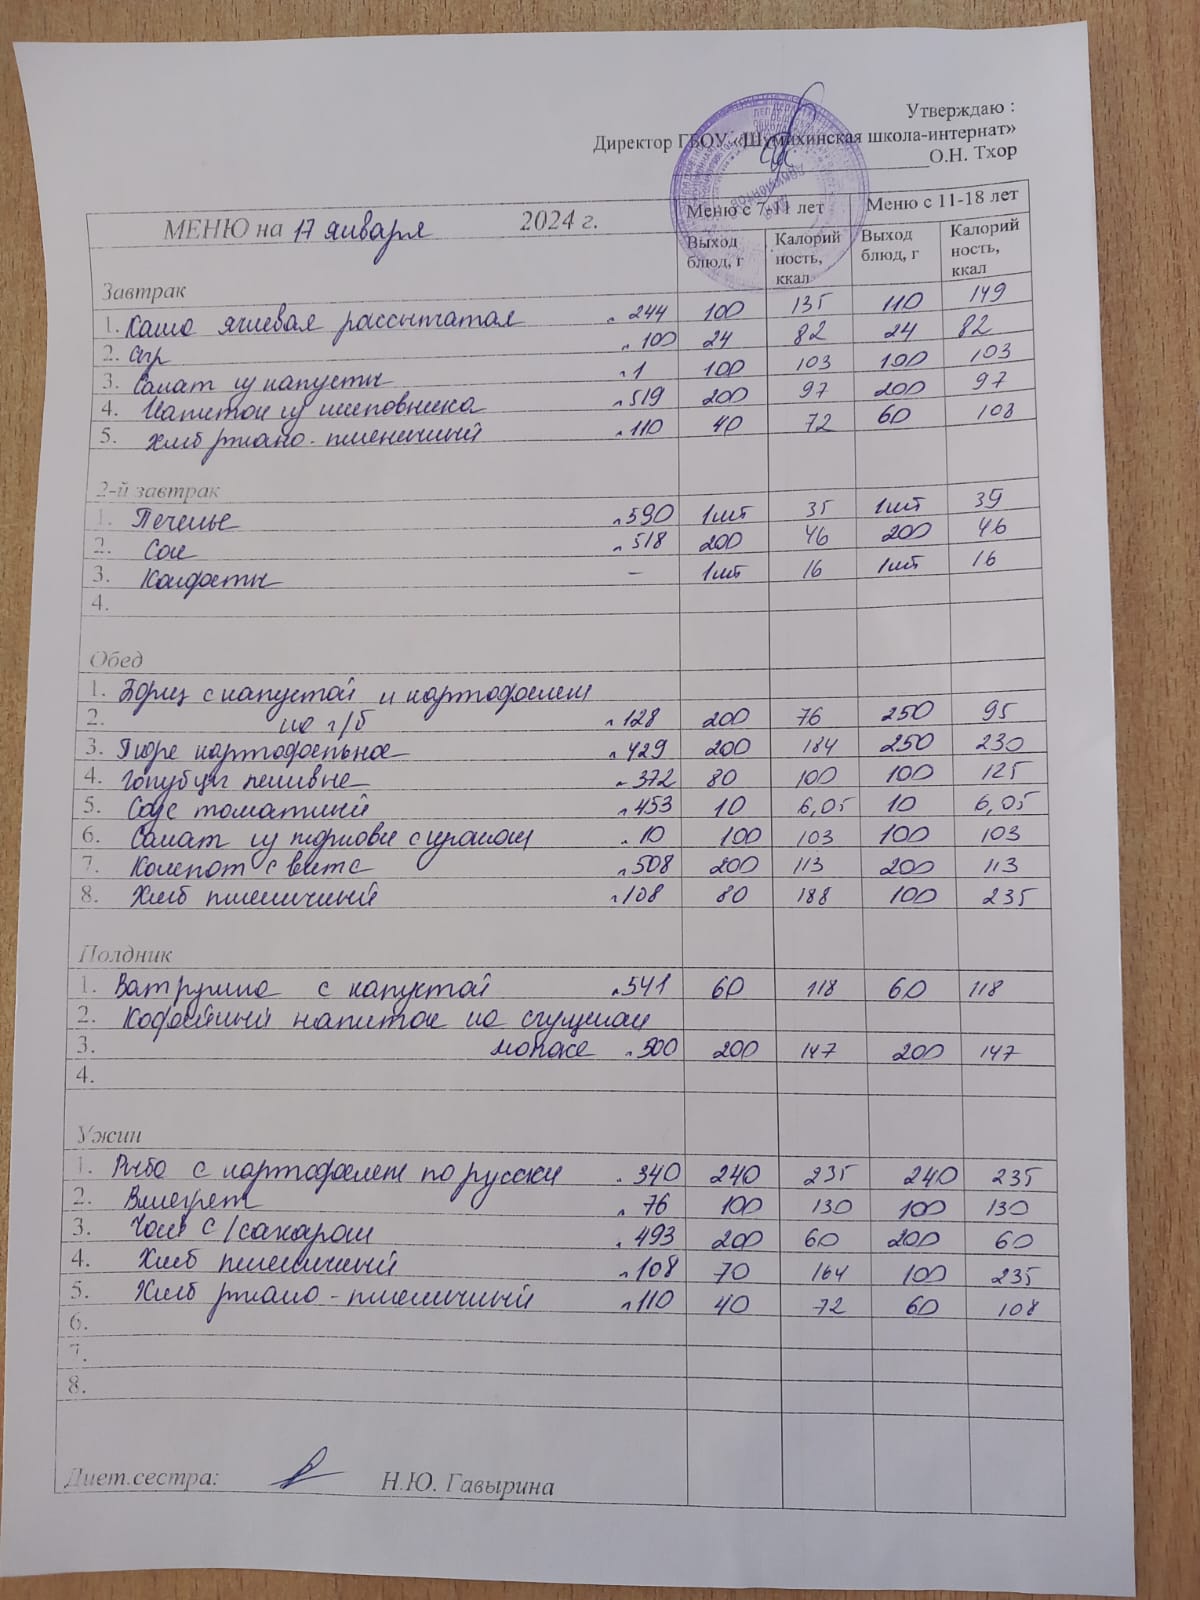 Утверждаю :
Директор ГБОУ «Шумихинская школа-интернат»
О.Н. Тхор
МЕНЮ на 17 января 2024 г. Меню с 7-11 лет Меню с 11-18 лет
Выход блюд, г Калорий ность, ккал Выход блюд, г Калорий ность, ккал
Завтрак
1. Каша ячневая рассыпчатая 244 100 135 110 149
2. Сыр 100 24 82 24 82
3. Салат из капусты 1 100 103 100 103
4. Напиток из шиповника 519 200 97 200 97
5. Хлеб ржано-пшеничный 110 40 72 60 108
2-й завтрак
1. Печенье 590 1шт 35 1шт 39
2. Сок 518 200 46 200 46
3. Конфеты - 1шт 16 1шт 16
4.
Обед
1. Борщ с капустой и картофелем
2. на г/б 128 200 76 250 95
3. Пюре картофельное 429 200 184 250 230
4. Голубцы ленивые 372 80 100 100 125
5. Соус томатный 453 10 6,05 10 6,05
6. Салат из моркови с 10 100 103 100 103
7. Компот с вит с 508 200 113 200 113
8. Хлеб пшеничный 108 80 188 100 235
Полдник
1. Ватрушка с капустой 541 60 118 60 118
2. Кофейный напиток на сгущен
3. молоке 500 200 147 200 147
4.
Ужин
1. Рыба с картофелем по русски 340 240 235 240 235
2. Винегрет 76 100 130 100 130
3. Чай с/сахаром 493 200 60 200 60
4. Хлеб пшеничный 108 70 164 100 235
5. Хлеб ржано-пшеничный 110 40 72 60 108
6.
7.
8.
Диет.сестра: Н.Ю. Гавырина